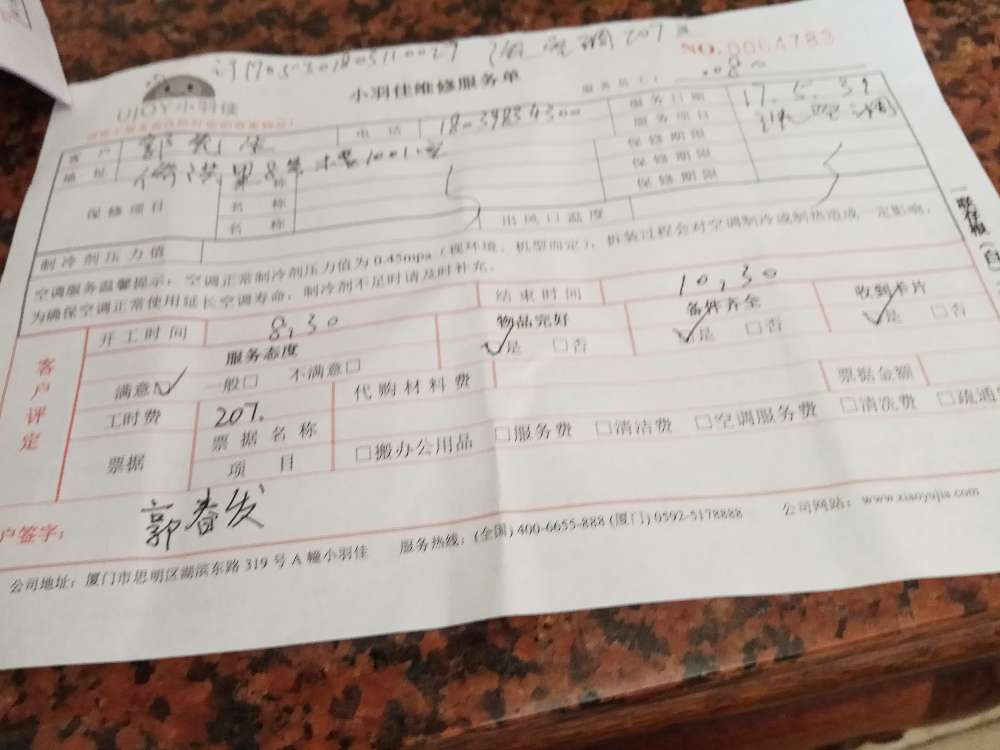 NO.0064783
UJOY小羽佳
小羽佳维修服务单
服务员工:
客户
电话
服务日期 17.5.31
地址
服务项目
保修期限
保修期限
保修期限
保修项目
名称
名称
名称
制冷剂压力值
出风口温度
空调服务温馨提示:空调正常制冷剂压力值为0.45mpa(视环境、机型而定),拆装过程会对空调制冷或制热造成一定影响,
为确保空调正常使用延长空调寿命,制冷剂不足时请及时补充。
客户评定
开工时间 8,30 结束时间 10,30
服务态度 物品完好 备件齐全 收到卡片
满意☑ 一般□ 不满意□ ☑是 □否 ☑是 □否 ☑是 □否
工时费 207. 代购材料费 票据金额
票据 票据名称
项目 □搬办公用品 □服务费 □清洁费 □空调服务费 □清洗费 □疏通
户签字: 郭春发
公司地址:厦门市思明区湖滨东路319号A幢小羽佳 服务热线:(全国)400-6655-888(厦门)0592-5178888 公司网站:www.xiaoyujia.com
一联存根(白